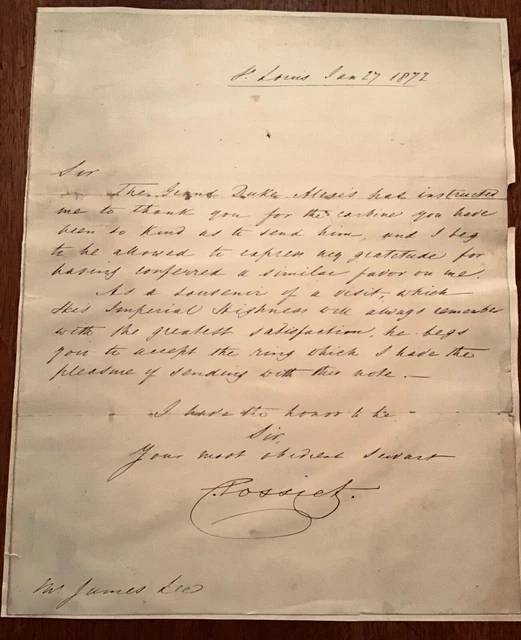 St Louis Jan 27 1872
Sir
The Grand Duke Alexis has instructed
me to thank you for the carbine you have
been so kind as to send him, and I beg
to be allowed to express my gratitude for
having conferred a similar favor on me.
As a souvenir of a visit, which
His Imperial Highness will always remember
with the greatest satisfaction, he begs
you to accept the ring which I have the
pleasure of sending with this note. —
I have the honor to be
Sir,
Your most obedient Servant
C. Possiet.
Mr James Lee